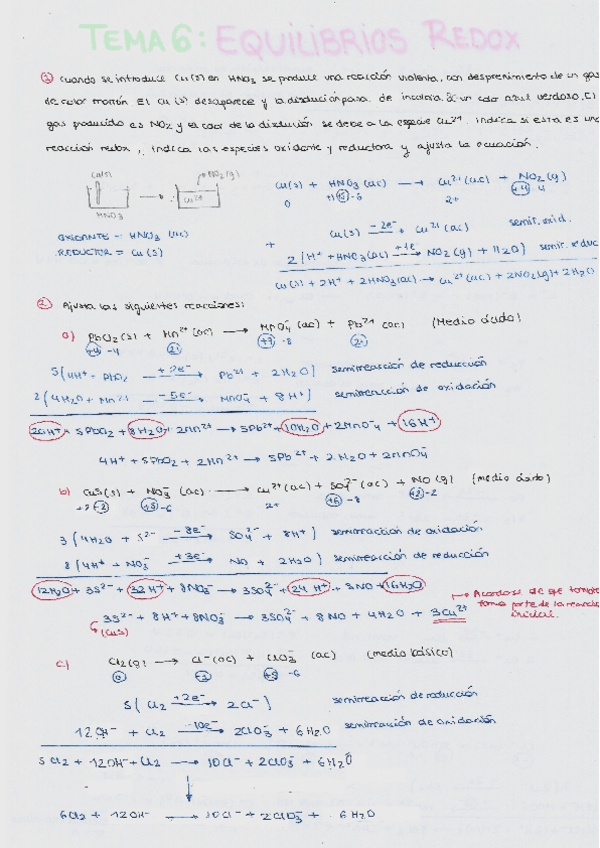 TEMA 6: EQUILIBRIOS REDOX
① Cuando se introduce Cu(s) en HNO₃ se produce una reacción violenta, con desprendimiento de un gas
de color marrón. El Cu(s) desaparece y la disolución pasa de incolora a un color azul verdoso. El
gas producido es NO₂ y el color de la disolución se debe a la especie Cu²⁺. Indica si esta es una
reacción redox, indica las especies oxidante y reductora y ajusta la ecuación.
Cu(s) NO₂(g)
Cu²⁺
HNO₃
Cu(s) + HNO₃(ac) → Cu²⁺(ac) + NO₂(g)
0 +1 +5 -6 2+ +4 -4
OXIDANTE = HNO₃ (ac)
REDUCTOR = Cu(s)
Cu(s) -2e⁻→ Cu²⁺(ac) semir. oxid.
+
2(H⁺ + HNO₃(ac) +1e→ NO₂(g) + H₂O) semir. reduc
Cu(s) + 2H⁺ + 2HNO₃(ac) → Cu²⁺(ac) + 2NO₂(g) + 2H₂O
② Ajusta las siguientes reacciones:
a) PbO₂(s) + Mn²⁺(ac) → MnO₄⁻(ac) + Pb²⁺(ac) (Medio ácido)
+4 -4 2+ +7 -8 2+
5(4H⁺ + PbO₂ +2e⁻→ Pb²⁺ + 2H₂O) semirreacción de reducción
2(4H₂O + Mn²⁺ -5e⁻→ MnO₄⁻ + 8H⁺) semirreacción de oxidación
20H⁺ + 5PbO₂ + 8H₂O + 2Mn²⁺ → 5Pb²⁺ + 10H₂O + 2MnO₄⁻ + 16H⁺
4H⁺ + 5PbO₂ + 2Mn²⁺ → 5Pb²⁺ + 2H₂O + 2MnO₄⁻
b) CuS(s) + NO₃⁻(ac) → Cu²⁺(ac) + SO₄²⁻(ac) + NO(g) (medio ácido)
+2 -2 +5 -6 2+ +6 -8 +2 -2
3(4H₂O + S²⁻ -8e⁻→ SO₄²⁻ + 8H⁺) semirreacción de oxidación
8(4H⁺ + NO₃⁻ +3e⁻→ NO + 2H₂O) semirreacción de reducción
12H₂O + 3S²⁻ + 32H⁺ + 8NO₃⁻ → 3SO₄²⁻ + 24H⁺ + 8NO + 16H₂O
3S²⁻ + 8H⁺ + 8NO₃⁻ → 3SO₄²⁻ + 8NO + 4H₂O + 3Cu²⁺
(CuS)
→ Acordarse de que también
forma parte de la reacción
inicial.
c) Cl₂(g) → Cl⁻(ac) + ClO₃⁻ (ac) (medio básico)
0 -1 +5 -6
5(Cl₂ +2e⁻→ 2Cl⁻) semirreacción de reducción
12OH⁻ + Cl₂ -10e⁻→ 2ClO₃⁻ + 6H₂O semirreacción de oxidación
5Cl₂ + 12OH⁻ + Cl₂ → 10Cl⁻ + 2ClO₃⁻ + 6H₂O
6Cl₂ + 12OH⁻ → 10Cl⁻ + 2ClO₃⁻ + 6H₂O